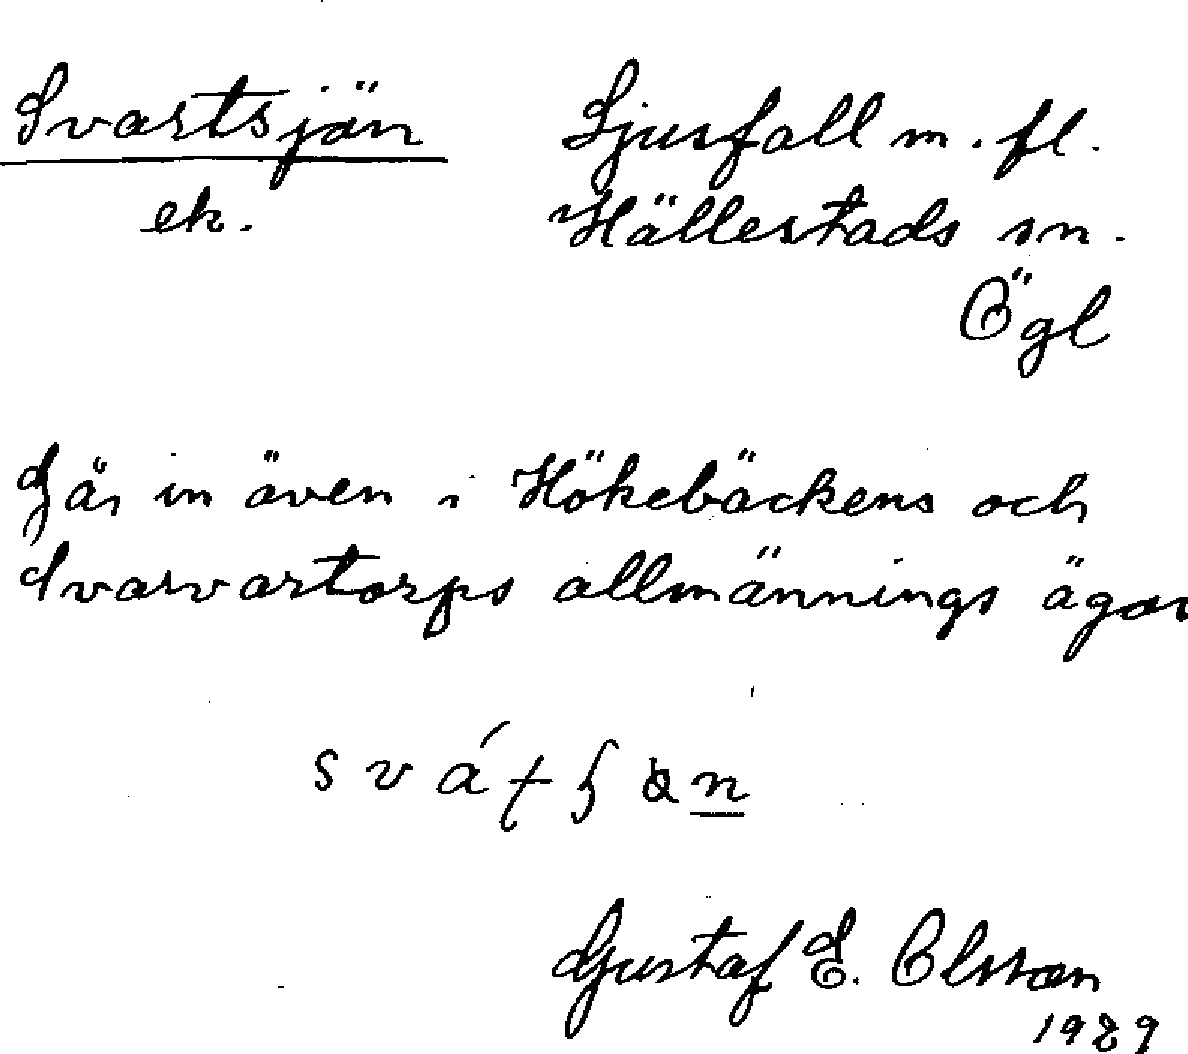 Svartsjön Ljusfall m. fl.
ek. Hällestads sn.
Ögl
Går in även i Hökebäckens och
Svarvartorps allmännings ägor
Gustaf E. Olsson
1929